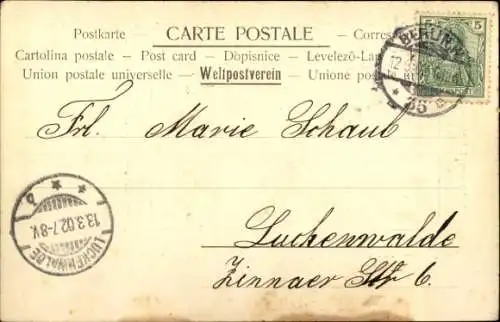 Postkarte CARTE POSTALE — Corres
Cartolina postale — Post card — Dopisnice — Levelező-La
Union postale universelle — Weltpostverein — Unione posta
5 5
BERLIN
12
* 35
Frl. Marie Schaul
13.3.02.7-8V.
LUCKENWALDE
Luckenwalde
Zinnaer Str 6.